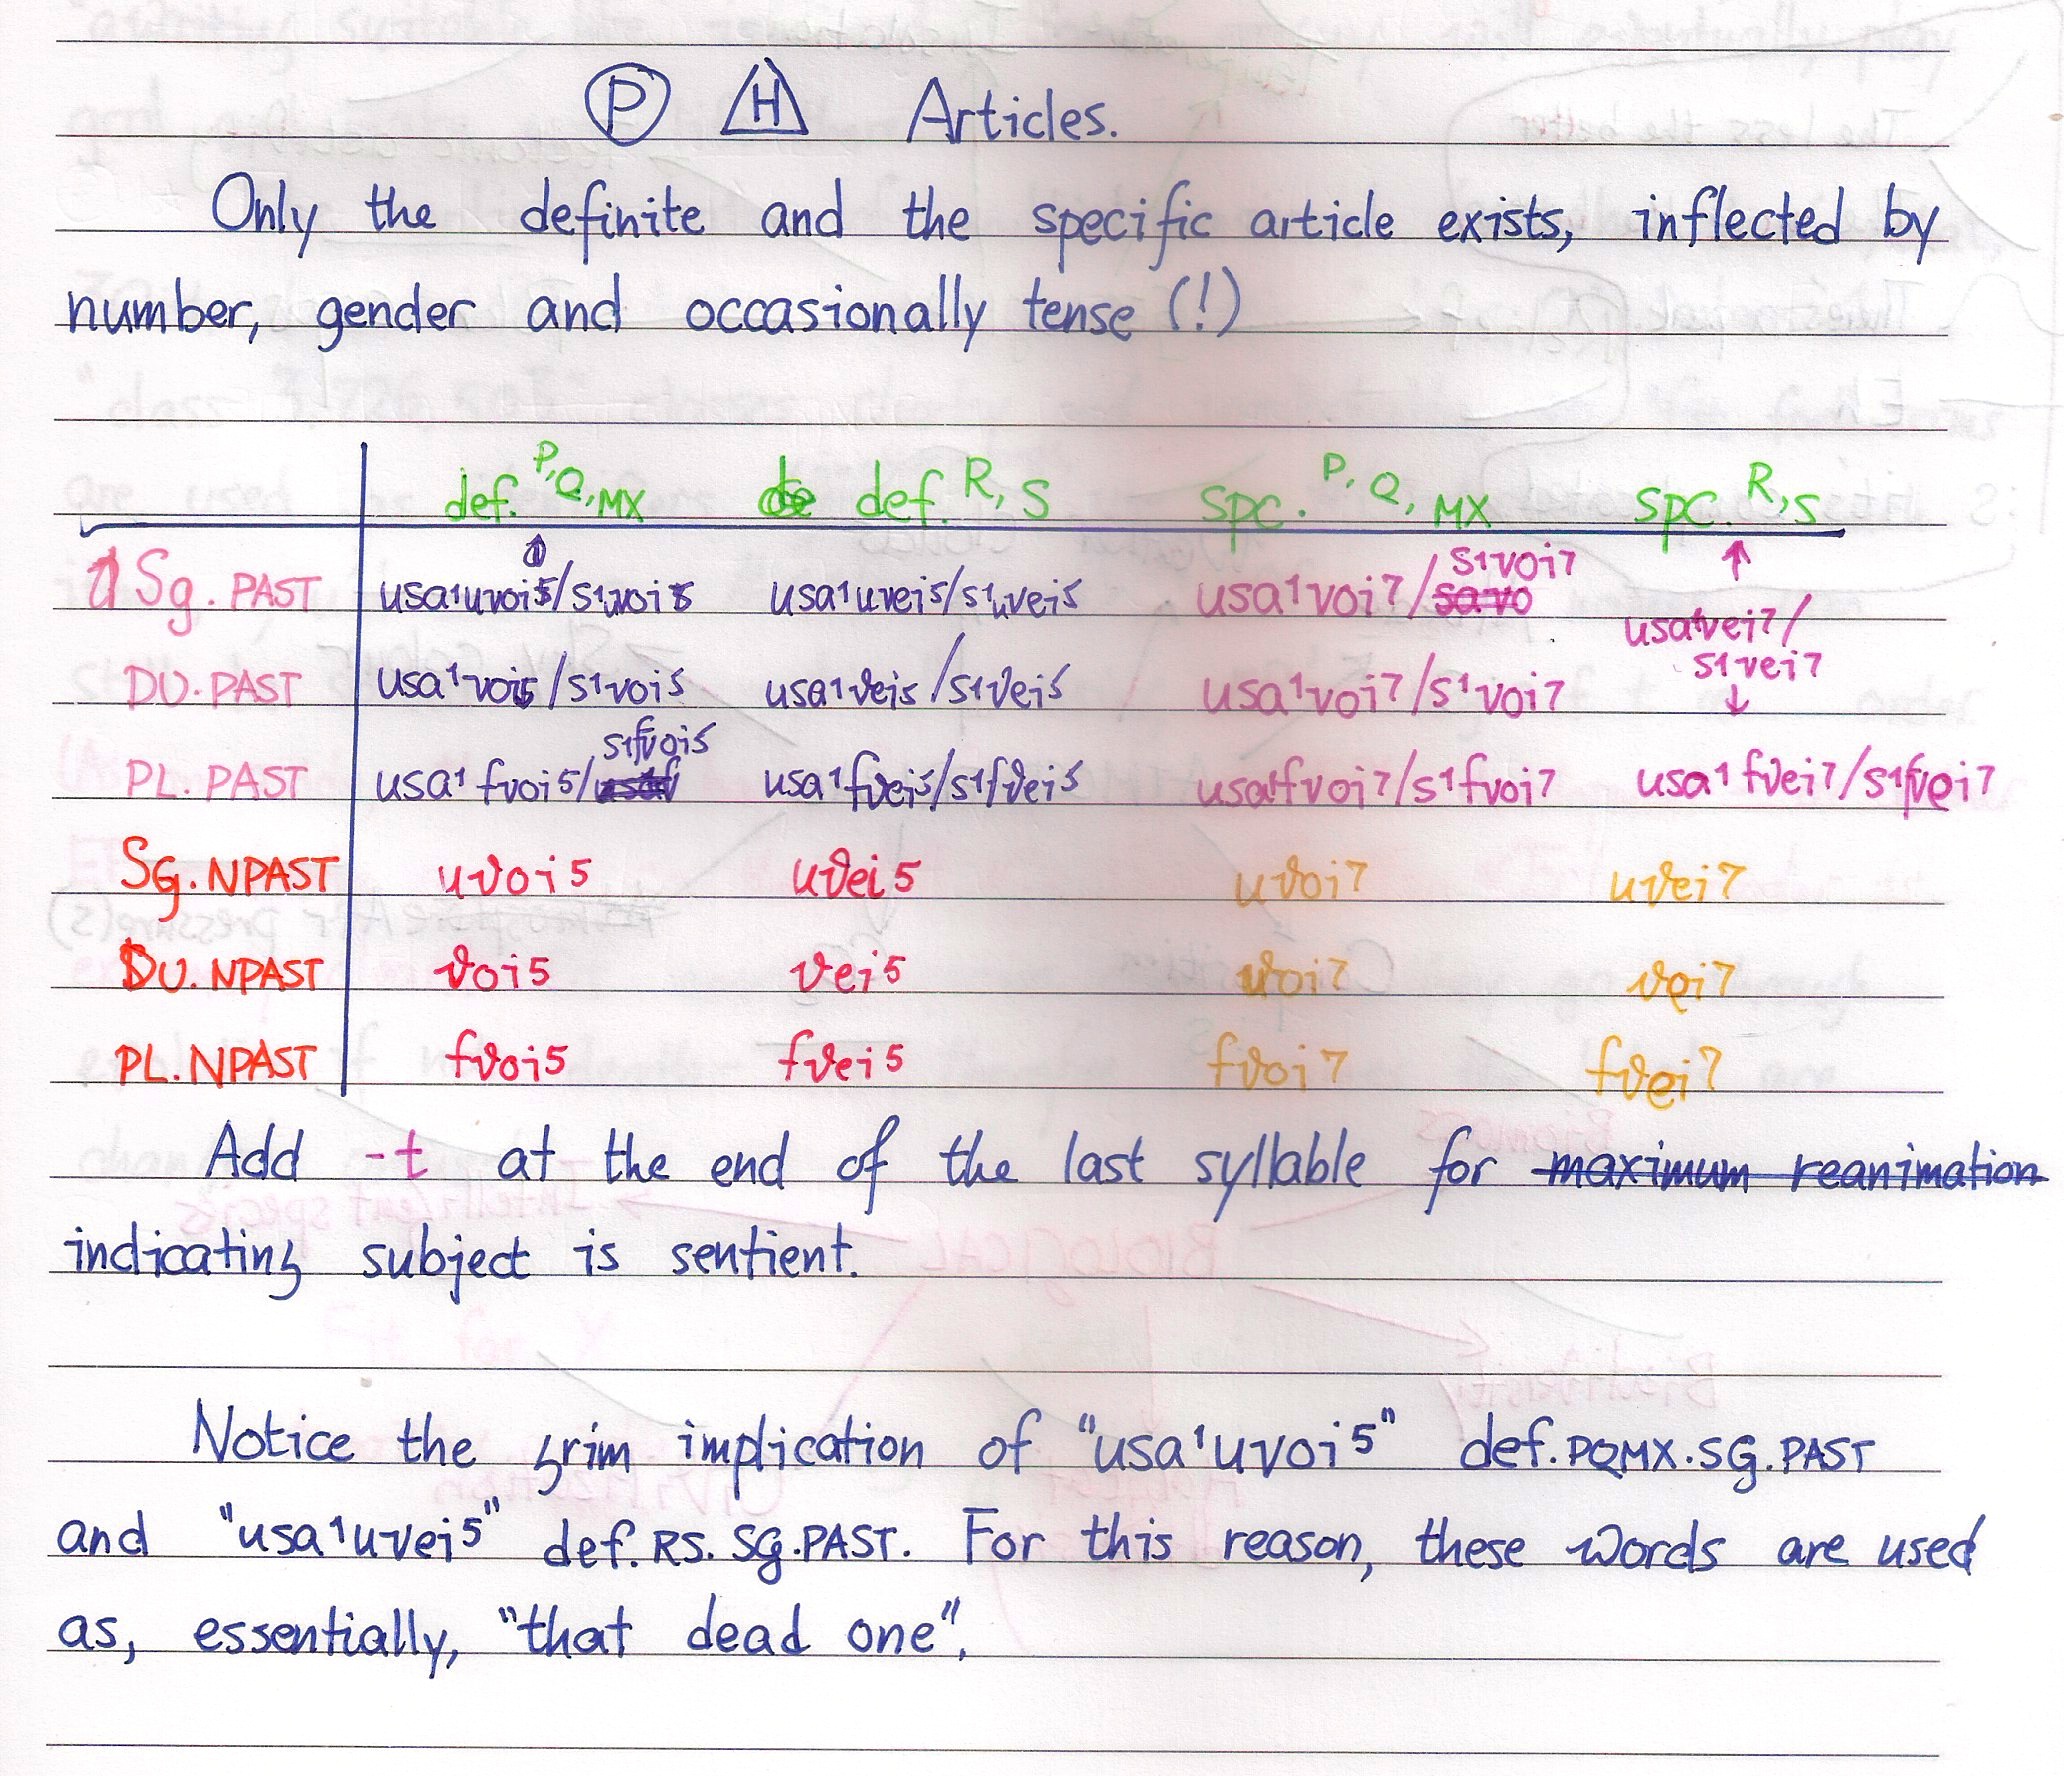 P H Articles.
Only the definite and the specific article exists, inflected by
number, gender and occasionally tense (!)
def. P,Q,MX def. R,S spc. P,Q,MX spc. R,S
Sg.PAST usa1uvoi5/s1uvoi5 usa1uvei5/s1uvei5 usa1voi7/s1voi7
usa1vei7/s1vei7
DU.PAST usa1voi5/s1voi5 usa1vei5/s1vei5 usa1voi7/s1voi7
PL.PAST usa1fvoi5/s1fvoi5 usa1fvei5/s1fvei5 usa1fvoi7/s1fvoi7 usa1fvei7/s1fvei7
SG.NPAST uvoi5 uvei5 uvoi7 uvei7
DU.NPAST voi5 vei5 voi7 vei7
PL.NPAST fvoi5 fvei5 fvoi7 fvei7
Add -t at the end of the last syllable for maximum reanimation
indicating subject is sentient.
Notice the grim implication of "usa1uvoi5" def.PQMX.SG.PAST
and "usa1uvei5" def.RS.SG.PAST. For this reason, these words are used
as, essentially, "that dead one".